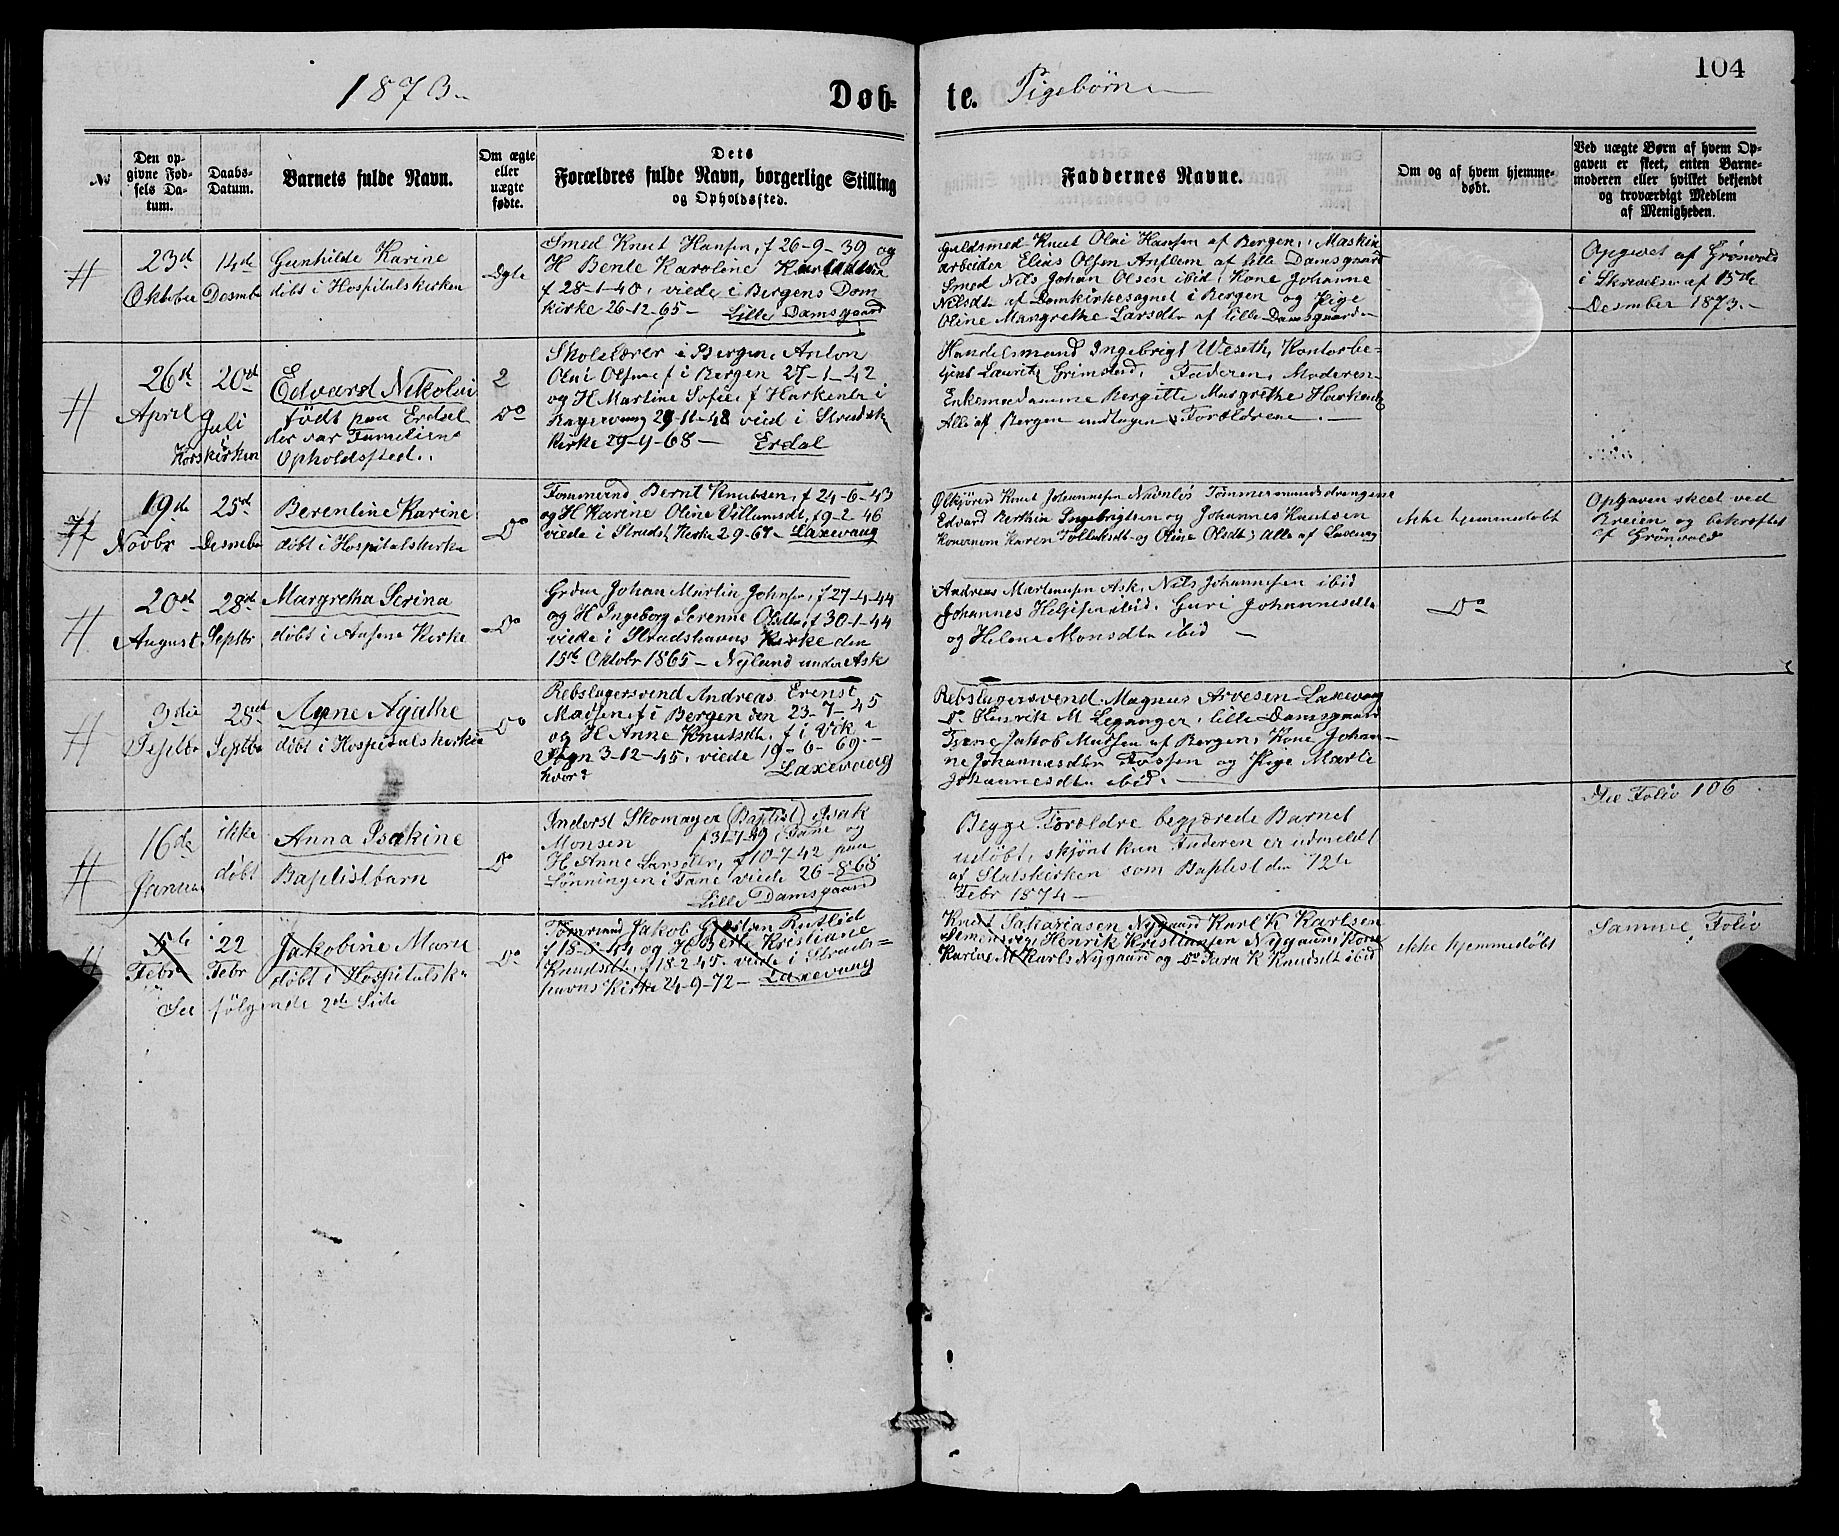 104
1873.
Døb-
te.
Pigebørn
No
Den op-
givne Fød-
sels Da-
tum.
Daabs-
Datum.
Barnets fulde Navn.
Om ægte
eller
uægte
fødte.
Dets
Forældres fulde Navn, borgerlige Stilling
og Opholdssted.
Faddernes Navne.
Om og af hvem hjemme-
døbt.
Ved uægte Børn af hvem Op-
gaven er skeet, enten Barne-
moderen eller hvilket bekjendt
og troværdigt Medlem
af Menigheden.
23d
Oktober
14d
Desmbr
Gunhilde Karine
döbt i Hospitalskirken
Ægte
Smed Knut Hansen, f 26-9-39 og
H Bente Karoline
f 28-1-40, viede i Bergens Dom
kirke 26-12-65 - Lille Damsgaard
Guldsmed Knut Olai Hansen af Bergen, Maskin
arbeider Elias Olsen af lille Damsgaard
Smed Nils Johan Olsen ibid, Kone Johanne
Nilsdt af Domkirkesognet i Bergen og Pige
Oline Margrethe Larsdtr af lille Damsgaard
Opgivet af Grönvold
i Skrivelse af 15de
Desmber 1873.-
26d
April
20d
Juli
Korskirken
Edvard Nikolai
födt paa Erdal
der var Familiens
Opholdssted.
2
Do
Skolelærer i Bergen, Anton
Olai Olsen f i Bergen 27-1-42
og H Martine Sofie f Harkentz i
29-11-48 vied i Strudsh
kirke 29-9-68 - Erdal
Handelsmand Ingebrigt Weseth, Kontorbe-
tjent Lauritz Grimelund, Faderen, Moderen
Enkemadamme Bergitte Margrethe Harkentz
Alle af Bergen undtagen Forældrene.-
19de
Novbr
25d
Desmbr
Berentine Karine
döbt i Hospitalskirke
Do
Tommermd Bernt Knutsen, f 24-6-43
og H Karine Oline Villumsdt, f 9-2 46
viede i Strudsh Kirke 2-9-67 - Laxevaag
Knut Johannesen Tömmermandsdrengene
Edvard Berthin Ingebrigtsen og Johannes Knutsen
Konerne Karen Tollaksdt og Oline Olsdt, Alle af Laxevaag
ikke hjemmedöbt
Opgaven skeet ved
Breien og bekræftet
af Grönvold
20d
August
28d
Septbr.
Margretha Serina
döbt i Kirke
Do
Grdm Johan Martin Johnsen, f 27-4-44
og H Ingeborg Serenne Olsdtr, f 30-1-44
viede i Strudshavns Kirke den
15de Oktobr 1865 - Nylund under Ask
Andreas Martenusen Ask, Nils Johannesen ibid
Johannes Helgesen ibid, Guri Johannesdtr
og Helene Monsdtr ibid -
Do
3die
Septbr
28d
Septbr
Agathe
döbt i Hospitalskirke
Do
Rebslagersvend Andreas Erenst
Madsen, f i Bergen den 23-7-45
og H Anne Knutsdt, f i Vik i
Sogn 3-12-45, viede 19-6-69-
hvor?
Laxevaag
Rebslagersvend Magnus Arvesen Laxevaag
Do Henrik M Leganger, lille Damsgaard
Jakob Madsen af Bergen, Kone Johan-
ne Johannesdtr Fossen og Pige Marte
Johannesdtr ibid. -
See Folio 106
16de
Januar
ikke
døbt
Anna Isakine
Baptistbarn
Do
Inderst Skomager (Baptist) Isak
Monsen f 31-7-39 i Fane og
H Anne Larsdtr, f 10-7-42 paa
Lönningen i Fane viede 26-8-68
Lille Damsgaard
Begge Forældre begjærede Barnet
udöbt, skjönt kun Faderen er udmeldt
af Statskirken som Baptist den 12te
Febr 1874 -
5te
Febr
22
Febr
Jakobine Marie
döbt i Hospitalsk
See fölgende 2de Side
Do
Tömrmnd Jakob Rutlid
f 18-8-49 og H Berte Kristiane
Knudsdtr, f 18-2-45, viede i Struds-
havns Kirke 24-9-72 - Laxevaag
Knut Sakariasen Nygaard Karl K Karlsen
Simonsvig Henrik Kristiansen Nygaard, Kone
Karine M Karls Nygaard og Do Sara K Knudsdt ibid
ikke hjemmedöbt
Samme Folio